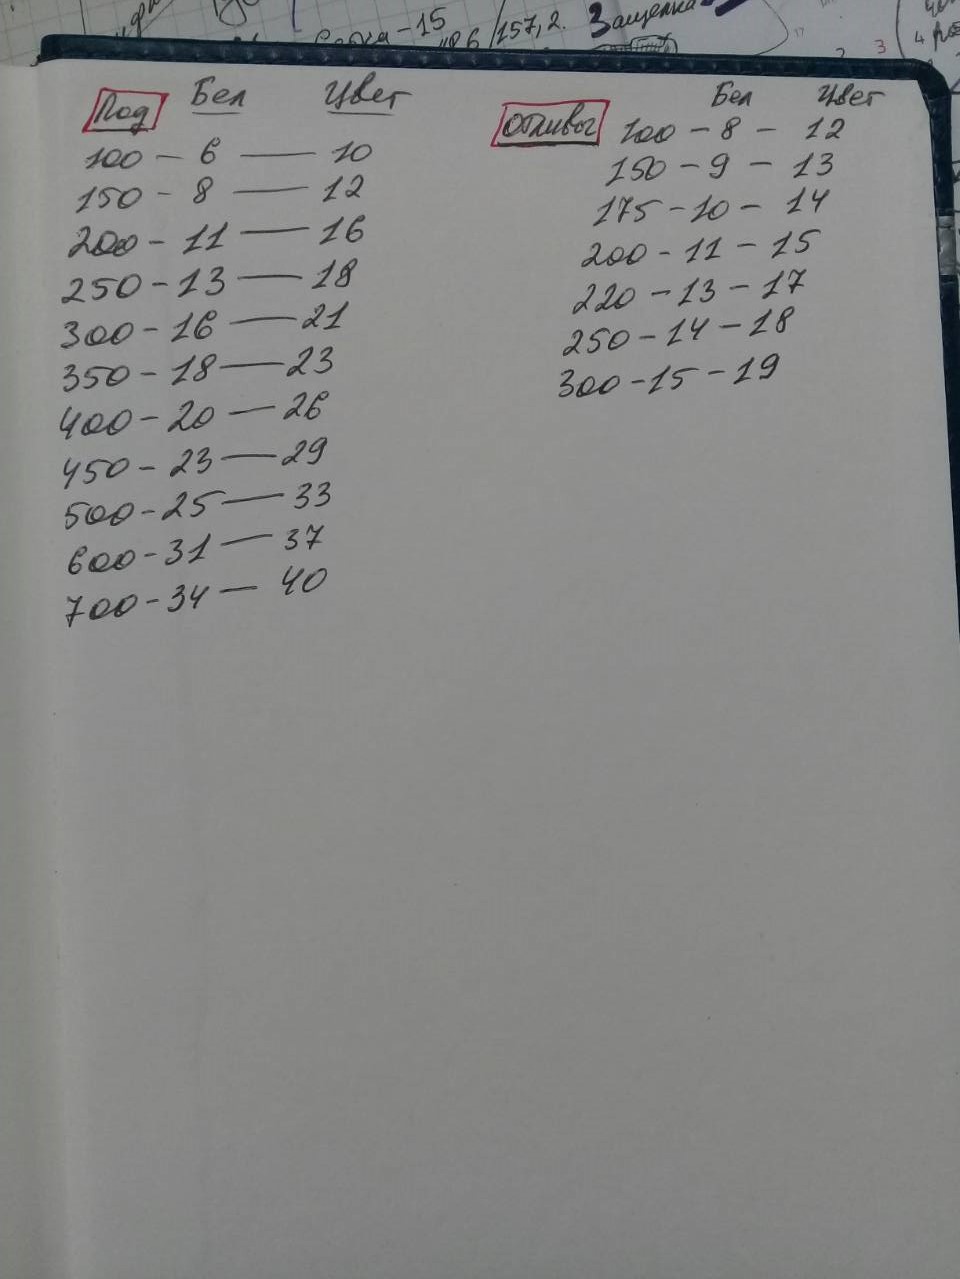 Сетка-15
№6/157,2. Защелка
Под Бел Цвет
100 - 6 — 10
150 - 8 — 12
200 - 11 — 16
250 - 13 — 18
300 - 16 — 21
350 - 18 — 23
400 - 20 — 26
450 - 23 — 29
500 - 25 — 33
600 - 31 — 37
700 - 34 — 40
Бел Цвет
Отливы 100 - 8 - 12
150 - 9 - 13
175 - 10 - 14
200 - 11 - 15
220 - 13 - 17
250 - 14 - 18
300 - 15 - 19